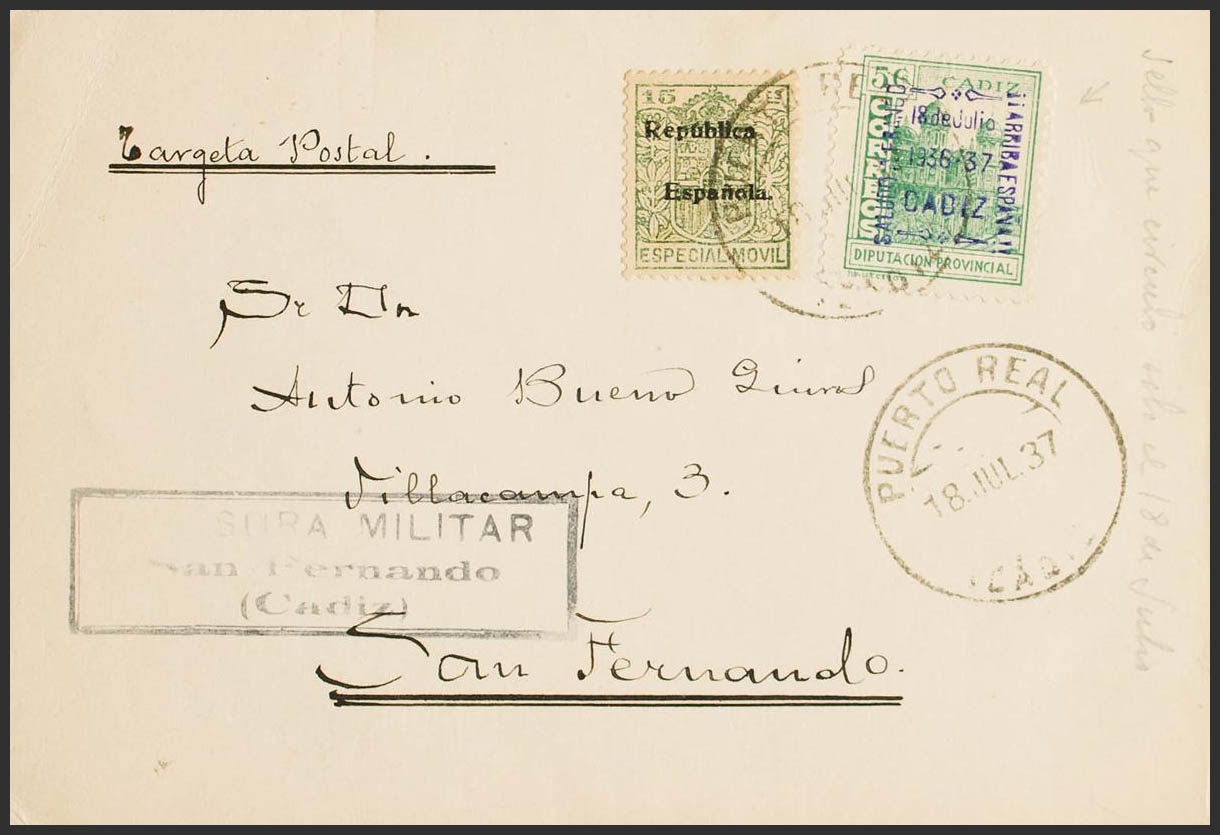 Targeta Postal.
15 CTS
República
Española.
ESPECIAL MOVIL
5c CADIZ
SOCORRO
18 de Julio
1936-37
CADIZ
SALUDO A FRANCO
¡¡ARRIBA ESPAÑA!!
DIPUTACION PROVINCIAL
Sr Dn
Antonio Bueno
Villacampa, 3.
San Fernando.
SURA MILITAR
San Fernando
(Cadiz)
PUERTO REAL
18.JUL.37
(CADIZ)
Sello que circulo solo el 18 de Julio